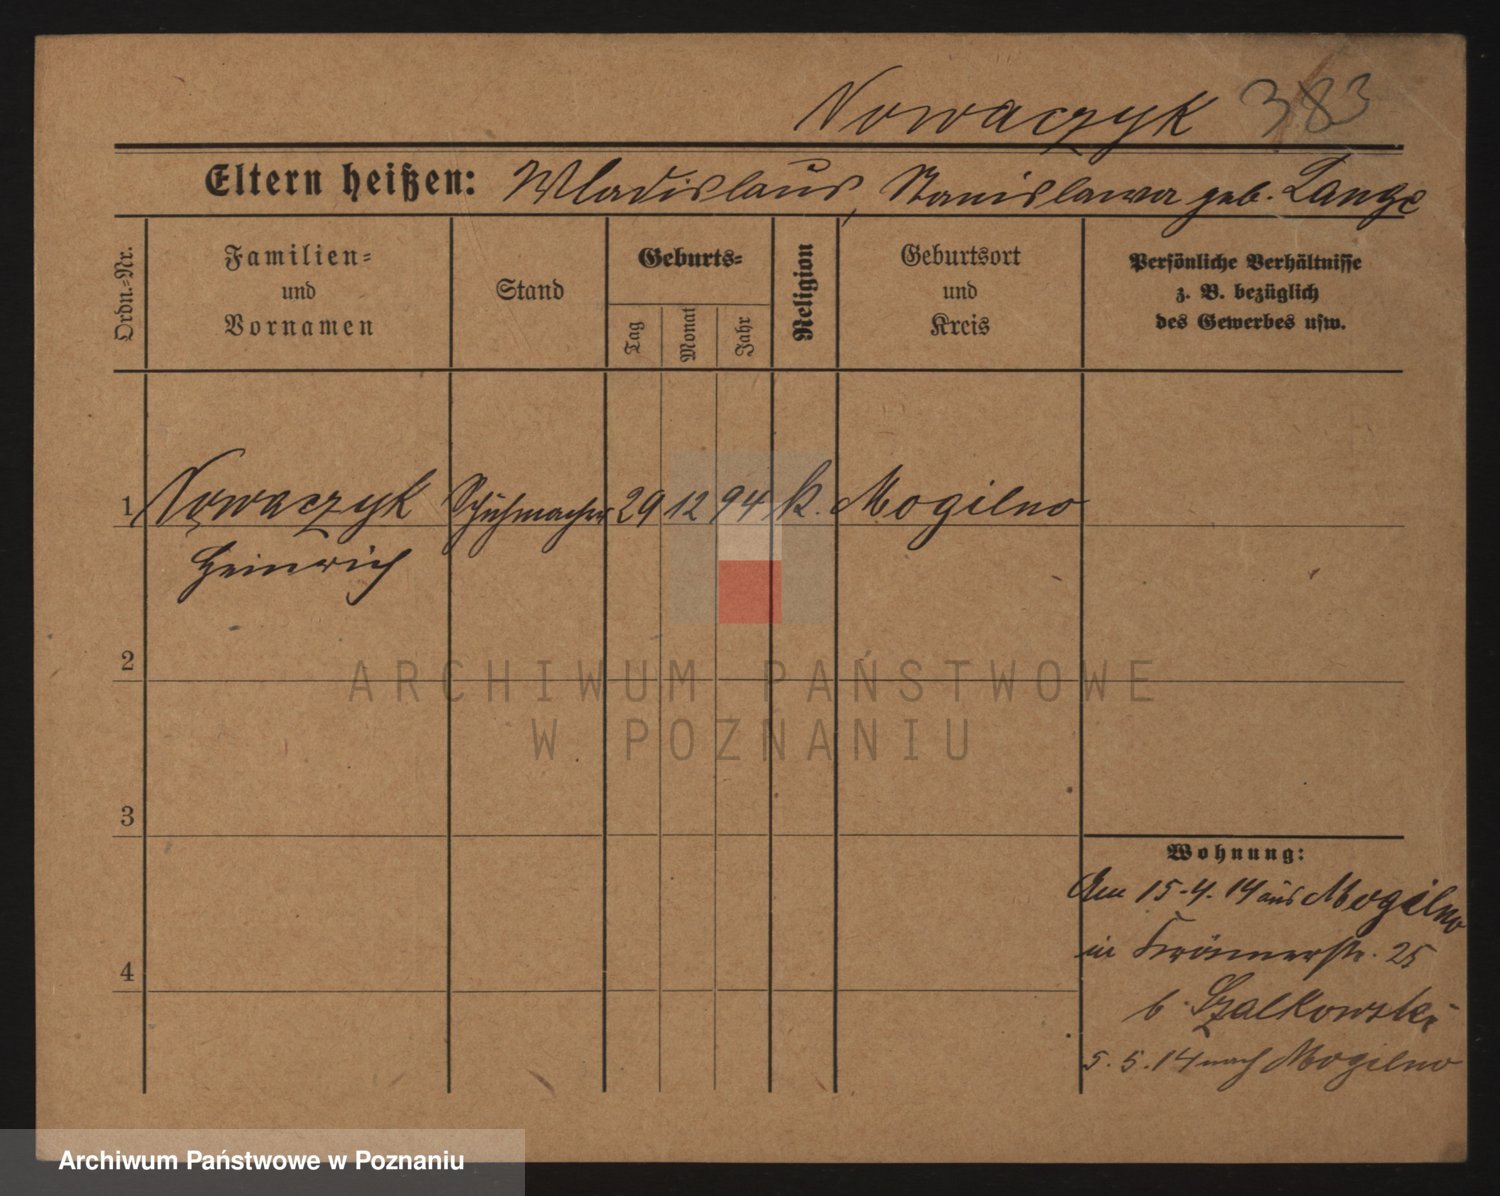 Nowaczyk 383
Eltern heißen: Wladislaus, Stanislawa geb. Lange
Ordn.-Nr.
Familien-
und
Vornamen
Stand
Geburts-
Tag
Monat
Jahr
Religion
Geburtsort
und
Kreis
Persönliche Verhältnisse
z. B. bezüglich
des Gewerbes usw.
1 Nowaczyk Schuhmacher 29 12 94 k. Mogilno
Heinrich
2
3
4
Wohnung:
Am 15.4.14 aus Mogilno
in 25
b.
5.5.14 nach Mogilno
ARCHIWUM PAŃSTWOWE
W POZNANIU
Archiwum Państwowe w Poznaniu